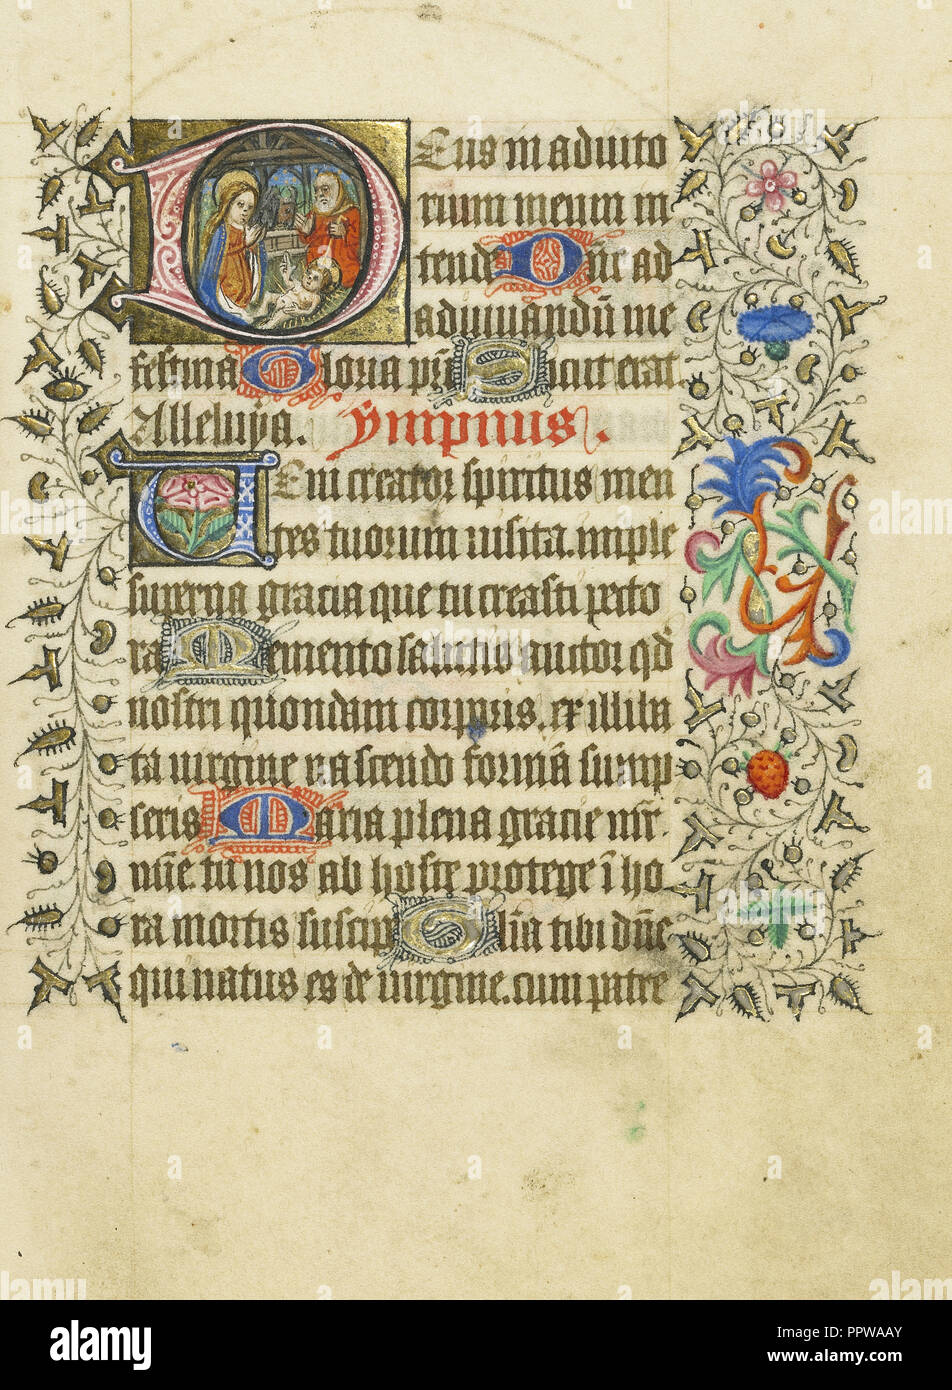 Deus in adiuto
rium meum in
tende Dn̄e ad
adiuuandū me
festina Gloria pr̄i Sicut erat.
Alleluya. ympnus.
Ueni creator spiritus men
tes tuorum uisita. imple
superna gracia que tu creasti pecto
ra Memento salutis auctor qd̄
nostri quondam corporis. ex illiba
ta uirgine nascendo formā sump
seris Maria plena gracie mr̄.
mīe. tu nos ab hoste protege ī ho
ra mortis suscipe Glīa tibi dn̄e
qui natus es de uirgine. cum patre
alamy
Image ID: PPWAAY
www.alamy.com